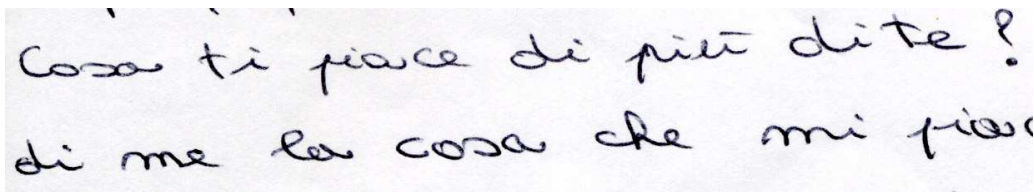 Cosa ti piace di più di te?
di me la cosa che mi piac